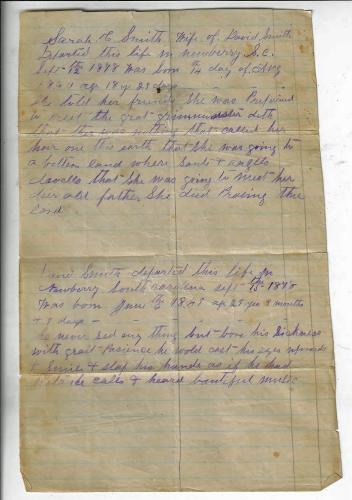 Sarah E Smith. Wife of David Smith
Departed this life in newberry S.C.
Sept 12th 1878 Was born 14th day of
age 18 yr 29 days
She told her friends She was Prepaired
to meet the grat deth
that ther was nothing that called her
hear one this earth that She was going to
a better land where Sants & angels
dwells that She was going to meet her
dear old father She died Prasing the
Lord
David Smith departed this life in
Newberry South carolina Sept 13th 1878
Was born June 5th 18 age 29 yrs 3 months
& 8 days
he never sed any thing but bore his Sickness
with grait Pacience he wold cast his eyes upwards
& Smile & slap his hands as if he had
calls & heard boutiful music